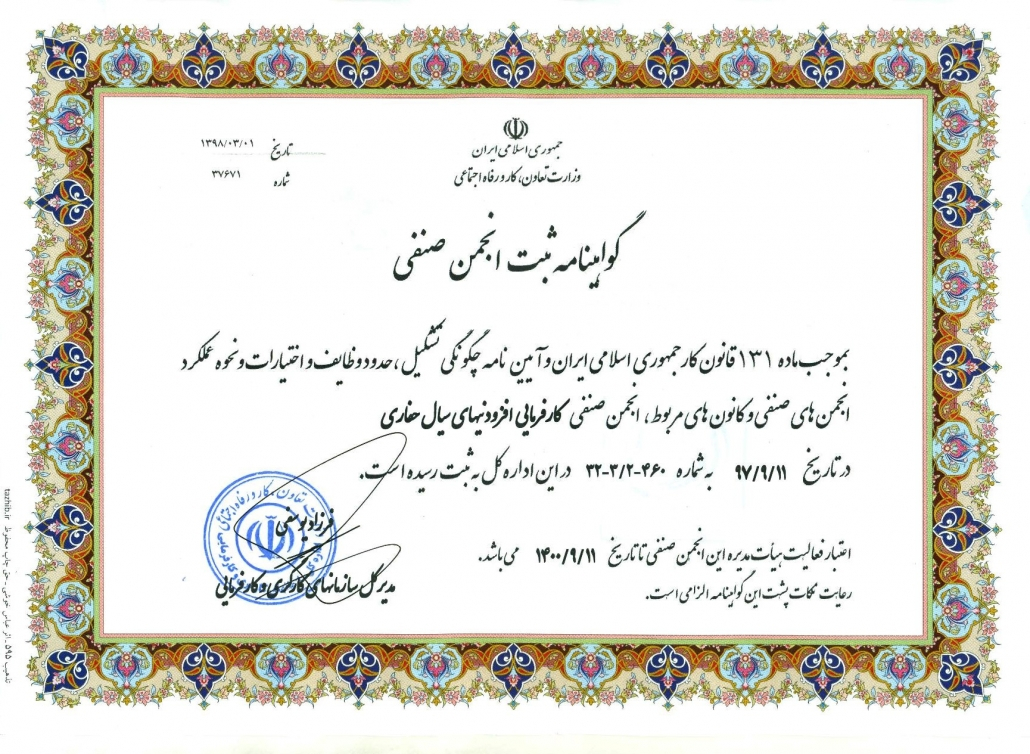 جمهوری اسلامی ایران
وزارت تعاون، کار و رفاه اجتماعی
تاریخ ۱۳۹۸/۰۳/۰۱
شماره ۳۷۶۷۱
گواهینامه ثبت انجمن صنفی
بموجب ماده ۱۳۱ قانون کار جمهوری اسلامی ایران و آیین نامه چگونگی تشکیل، حدود وظایف و اختیارات و نحوه عملکرد
انجمن های صنفی و کانون های مربوط، انجمن صنفی کارفرمایی افزودنیهای سیال حفاری
در تاریخ ۹۷/۹/۱۱ به شماره ۳۲-۳/۲-۴۶۰ در این اداره کل به ثبت رسیده است.
اعتبار فعالیت هیأت مدیره این انجمن صنفی تا تاریخ ۱۴۰۰/۹/۱۱ می باشد.
رعایت نکات پشت این گواهینامه الزامی است.
فرزاد یوسفی
مدیر کل سازمانهای کارگری و کارفرمایی
تعاون، کار و رفاه اجتماعی
تذهیب ۵۹۵ - اثر عباس خوشی - حق چاپ محفوظ tazhib.ir